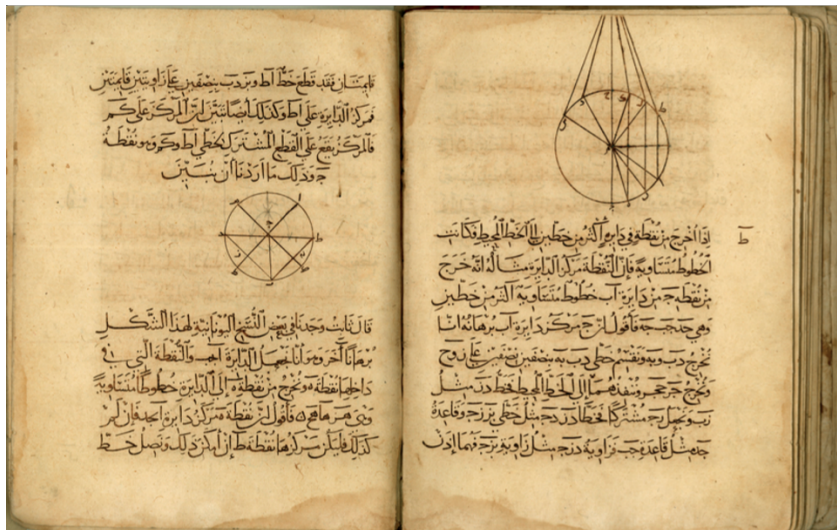 ط
اذا اخرج من نقطة في دايرة اكثر من خطين الى الخط المحيط فكانت
الخطوط متساوية فان النقطة مركز الدايرة مثاله انه خرج
من نقطة ج من دايرة اب خطوط متساوية اكثر من خطين
وهي جد جب جه فاقول ان ج مركز دايرة اب برهانه انا
نخرج دب وبه ونقسم خطي دب به بنصفين نصفين على ز وح
ونخرج جز جح وننفذهما الى الخط المحيط فخط دز مثل
زب ونجعل جز مشتركا فخطا دز زج مثل خطي بز زج وقاعدة
جد مثل قاعدة جب فزاوية دزج مثل زاوية بزج فهما اذن
قايمتان فقد قطع خط اط وتر دب بنصفين على زاويتين قايمتين
فمركز الدايرة على اط وكذلك ايضا نبين ان المركز على كم
فالمركز يقع على القطع المشترك لخطي اط وكم وهو نقطة
ج وذلك ما اردنا ان نبين
قال ثابت وجدنا في بعض النسخ اليونانية لهذا الشكل
برهانا اخر وهو انا نجعل الدايرة والنقطة التي في
داخلها نقطة ه ونخرج من نقطة ه الى الدايرة خطوطا متساوية
فاقول ان نقطة ه مركز دايرة ابجد فان لم
كذلك فليكن مركزها نقطة ط ان امكن ذلك ونصل خط